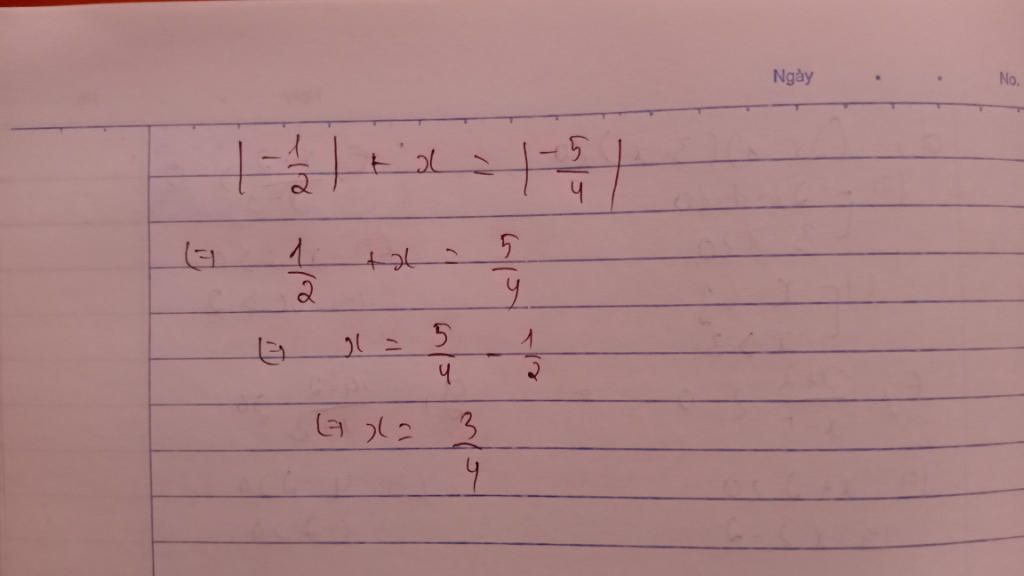 Ngày No.
|-1/2| + x = |-5/4|
⇔ 1/2 + x = 5/4
⇔ x = 5/4 - 1/2
⇔ x = 3/4